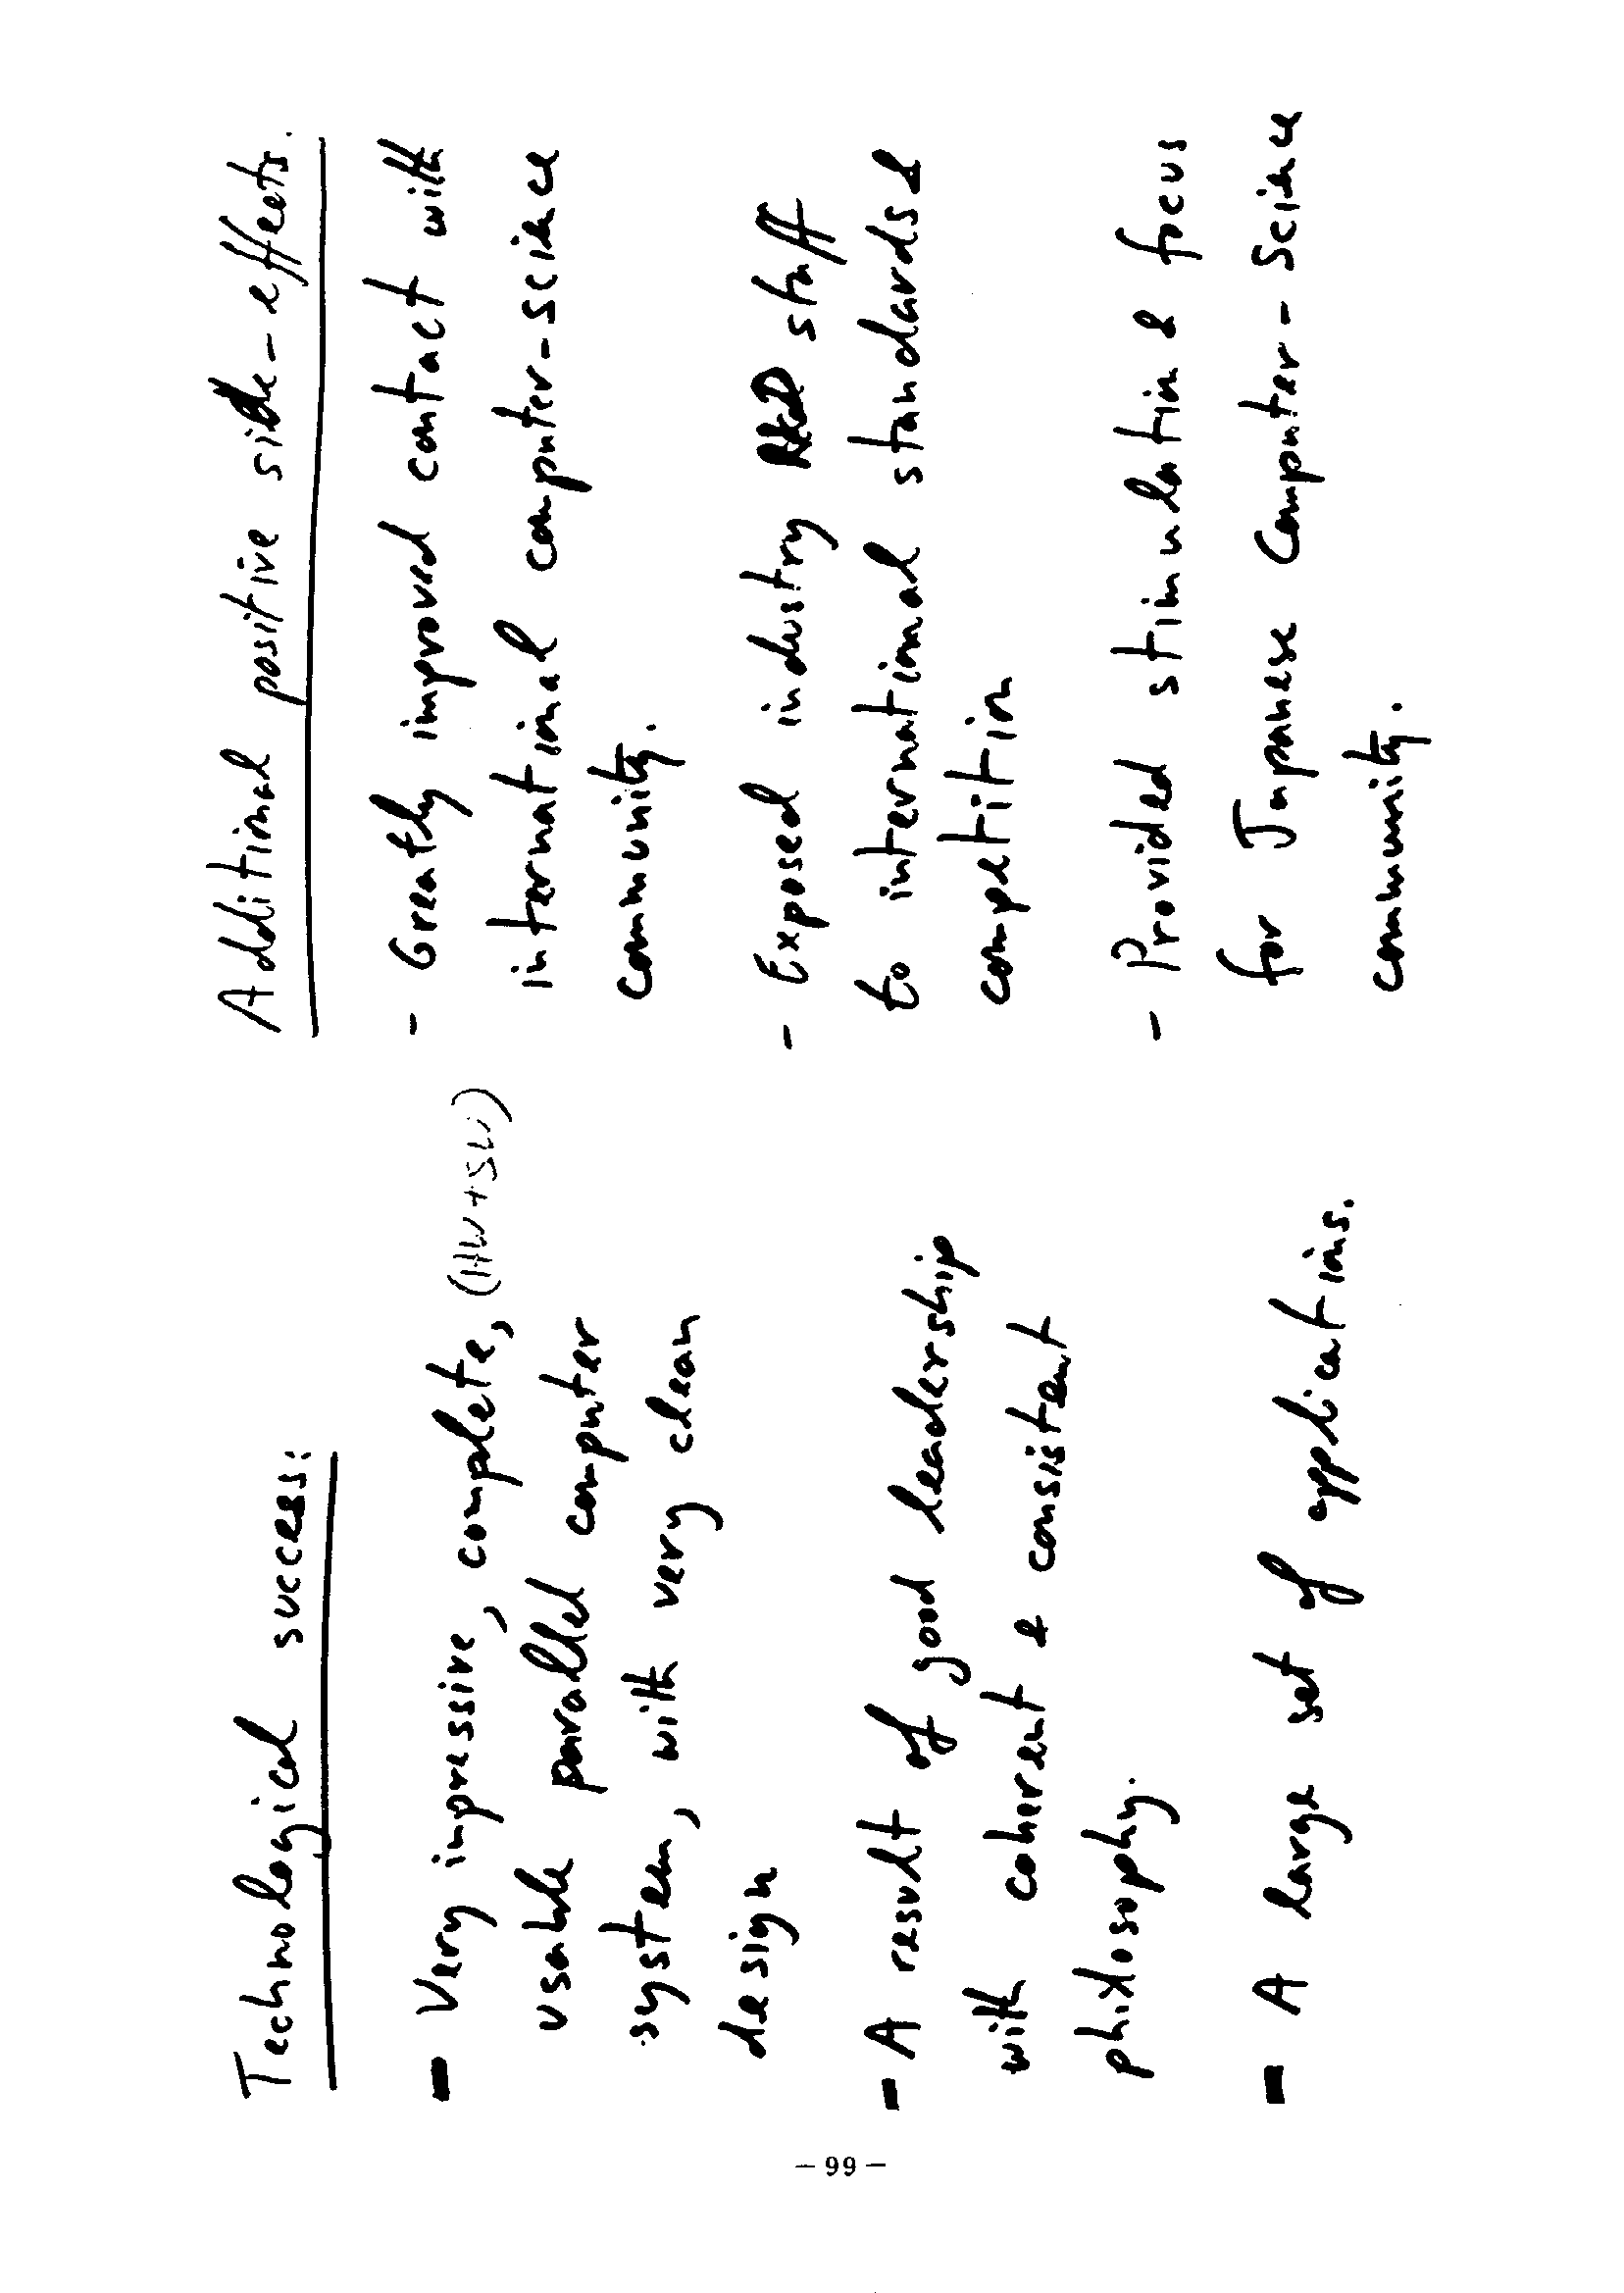 Technological success:
- Very impressive, complete, (HW+SW)
usable parallel computer
system, with very clean
design
- A result of good leadership
with coherent & consistent
philosophy.
- A large set of applications.
Additional positive side-effects.
- Greatly improved contact with
international computer-science
community.
- Exposed industry R&D staff
to international standards &
competition
- Provided stimulation & focus
for Japanese Computer-Science
community.
- 99 -